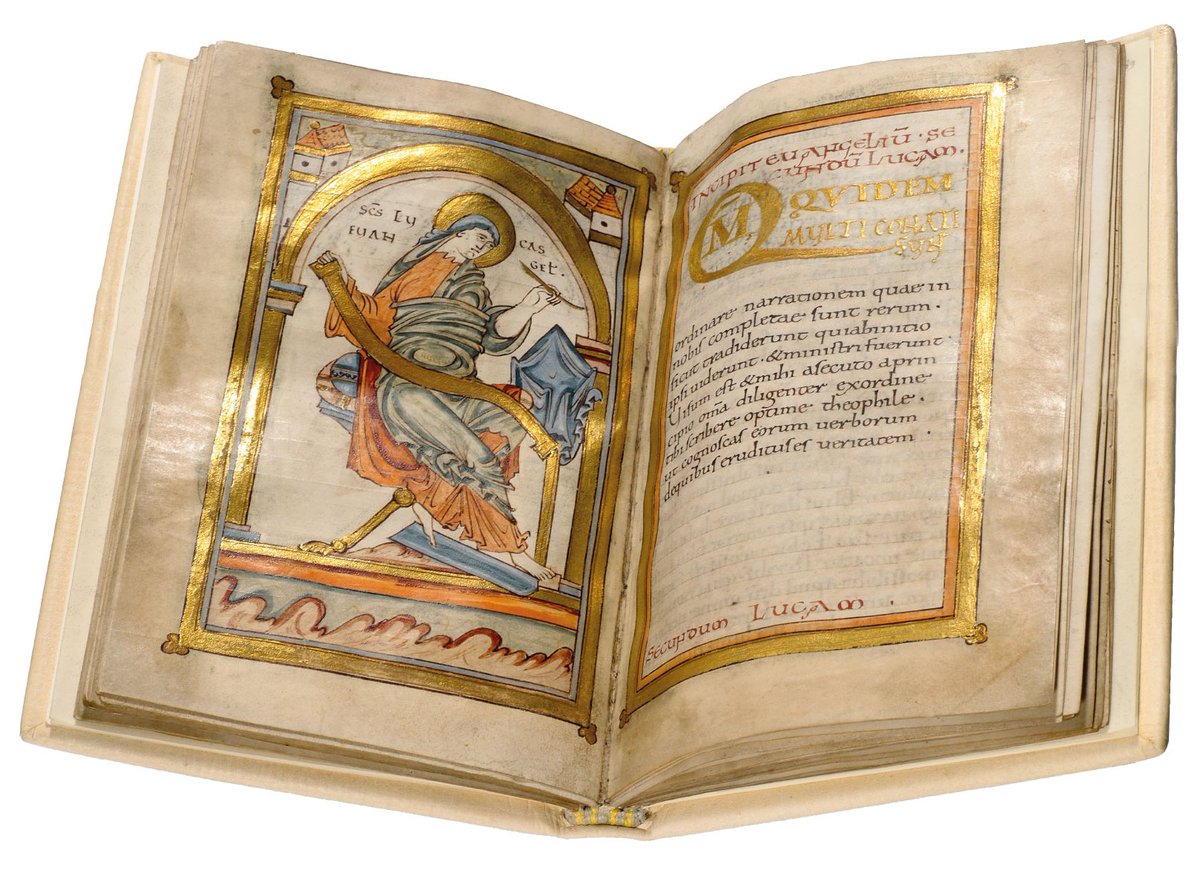 SC̄S LU
CAS
EUAN
GEL̄.
INCIPIT EUANGELIŪ · SE
CUNDŪ LUCAM.
QM̄ QVIDEM
MULTI CONATI
SUNT
ordinare narrationem quae in
nobis completae sunt rerum.
sicut tradiderunt quiabinitio
ipsi uiderunt · & ministri fuerunt ·
Uisum est & mihi asecuto aprin
cipio om̄a diligenter exordine
tibi scribere optime theophile ·
ut cognoscas eorum uerborum
dequibus eruditus es ueritatem ·
SECUNDUM LUCAM